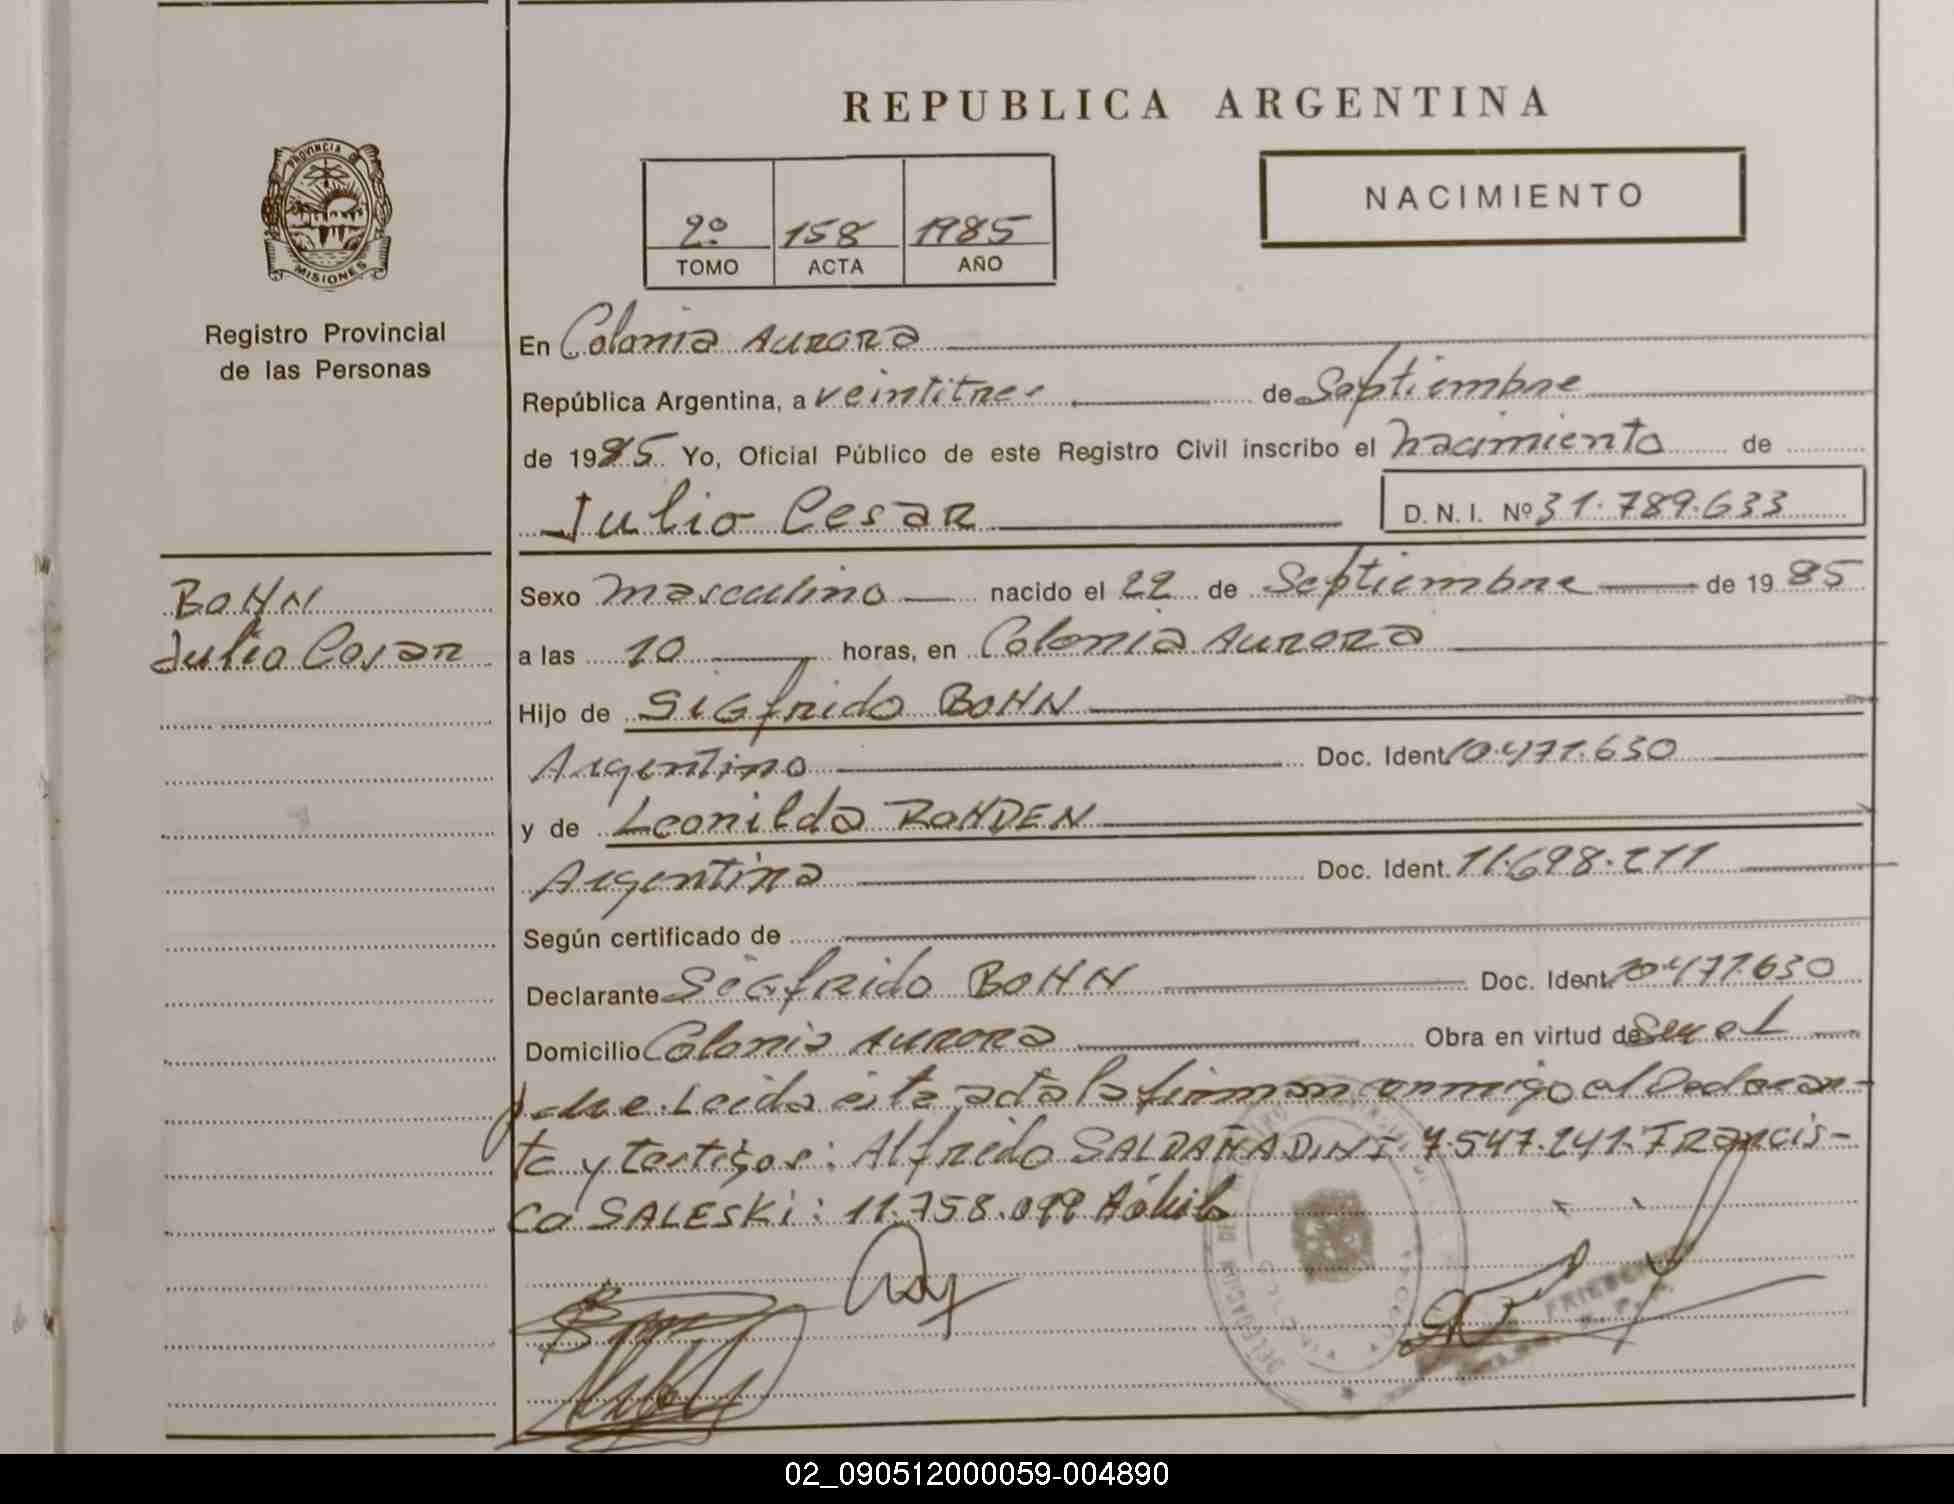 REPUBLICA ARGENTINA
PROVINCIA DE
MISIONES
Registro Provincial
de las Personas
2º 158 1985
TOMO ACTA AÑO
NACIMIENTO
En Colonia Aurora
República Argentina, a veintitres de Septiembre
de 1985 Yo, Oficial Público de este Registro Civil inscribo el nacimiento de
Julio Cesar D. N. I. Nº 31.789.633
BOHN
Julio Cesar
Sexo masculino nacido el 22 de Septiembre de 1985
a las 10 horas, en Colonia Aurora
Hijo de Sigfrido BOHN
Argentino Doc. Ident. 10.471.630
y de Leonilda ROHDEN
Argentina Doc. Ident. 11.698.211
Según certificado de
Declarante Sigfrido BOHN Doc. Ident. 10.471.630
Domicilio Colonia Aurora Obra en virtud de Ser el
padre. Leida esta acta la firman conmigo el Declaran-
te y testigos: Alfredo SALDAÑA D.N.I. 7.547.241. Francis-
co SALESKI: 11.758.099
02_090512000059-004890